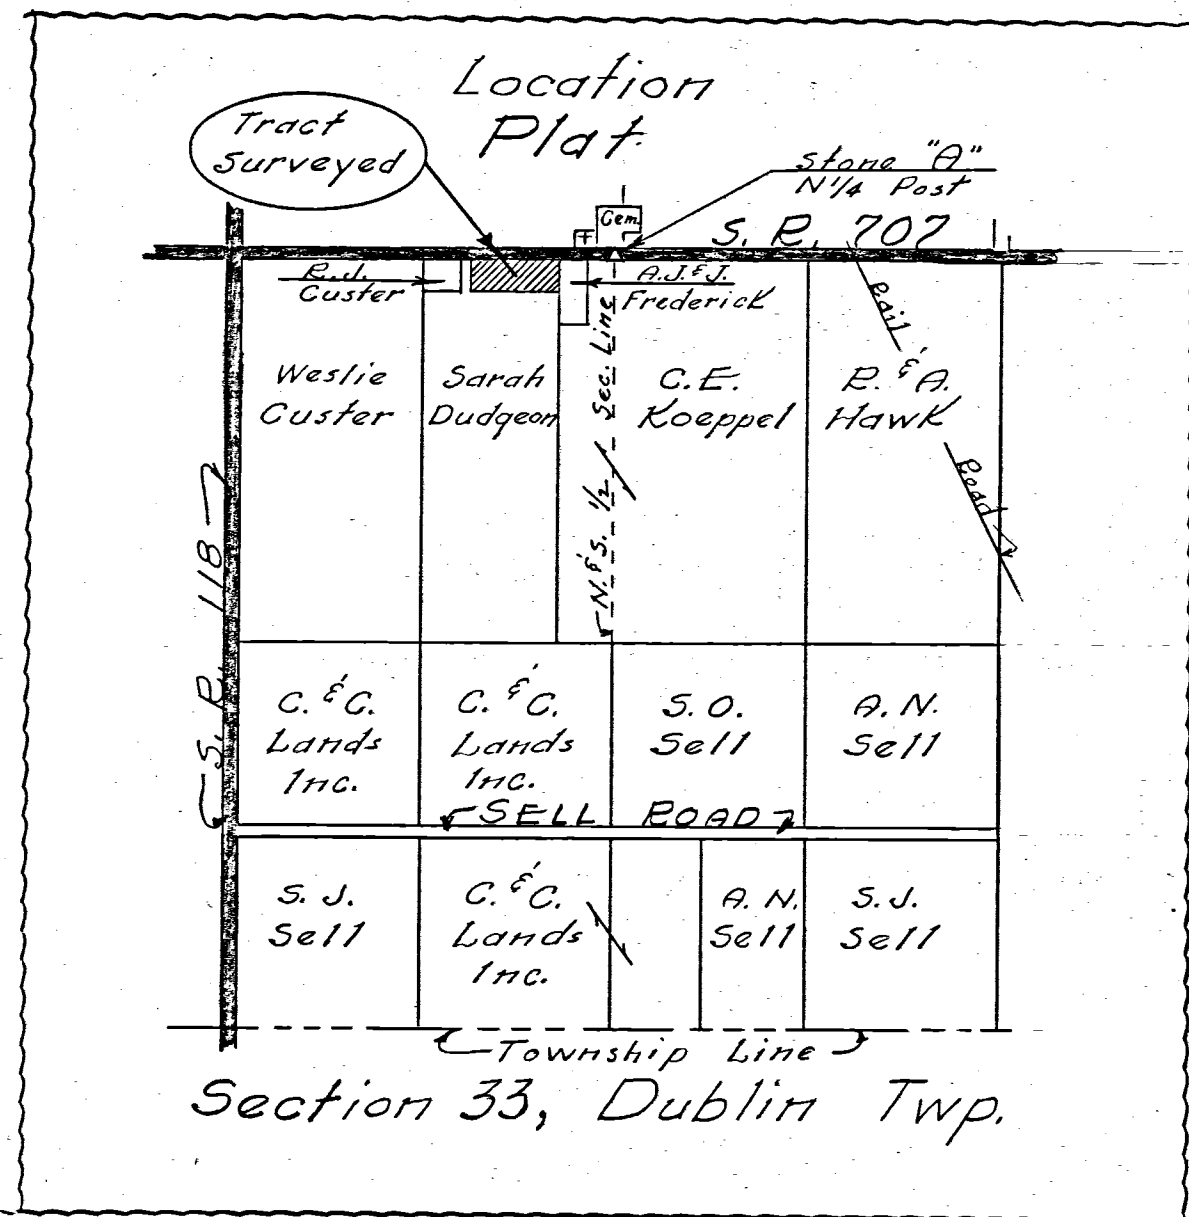 Location
Plat.
Tract
Surveyed
Stone "A"
N 1/4 Post
Cem.
S. R. 707
R. J.
Custer
A. J. & J.
Frederick
Rail
Road
Weslie
Custer
Sarah
Dudgeon
N. & S. 1/2 Sec. Line
C. E.
Koeppel
R. & A.
Hawk
S. R. 118
C. & C.
Lands
Inc.
C. & C.
Lands
Inc.
S. O.
Sell
A. N.
Sell
SELL ROAD
S. J.
Sell
C. & C.
Lands
Inc.
A. N.
Sell
S. J.
Sell
Township Line
Section 33, Dublin Twp.